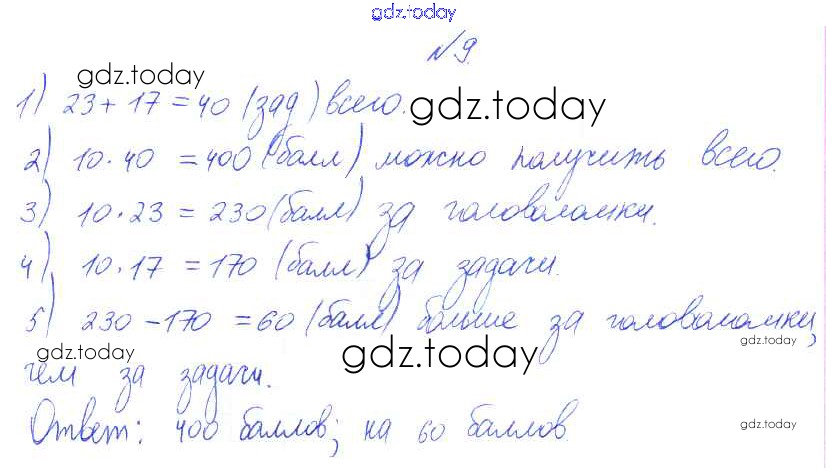 gdz.today
№9.
gdz.today
1) 23 + 17 = 40 (зад) всего. gdz.today
2) 10 · 40 = 400 (балл) можно получить всего.
3) 10 · 23 = 230 (балл) за головоломки.
4) 10 · 17 = 170 (балл) за задачи.
5) 230 - 170 = 60 (балл) больше за головоломки,
gdz.today gdz.today gdz.today
чем за задачи.
Ответ: 400 баллов; на 60 баллов.
gdz.today